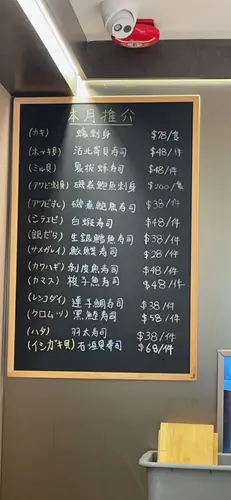 本月推介
(カキ) 蠔刺身 $78/隻
(ホッキ貝) 活北寄貝寿司 $48/件
(ミル貝) 象拔蚌寿司 $48/件
(アワビ刺身) 磯煮鮑魚刺身 $200/隻
(アワビずし) 磯煮鮑魚寿司 $38/件
(シラエビ) 白蝦寿司 $48/件
(銀だら) 生銀鱈魚寿司 $38/件
(サメグレイ) 鮫鰈寿司 $28/件
(カワハギ) 剥皮魚寿司 $48/件
(カマス) 梭子魚寿司 $48/件
(レンコダイ) 連子鯛寿司 $38/件
(クロムツ) 黑鯥寿司 $58/件
(ハタ) 羽太寿司 $38/件
(イシガキ貝) 石垣貝寿司 $68/件